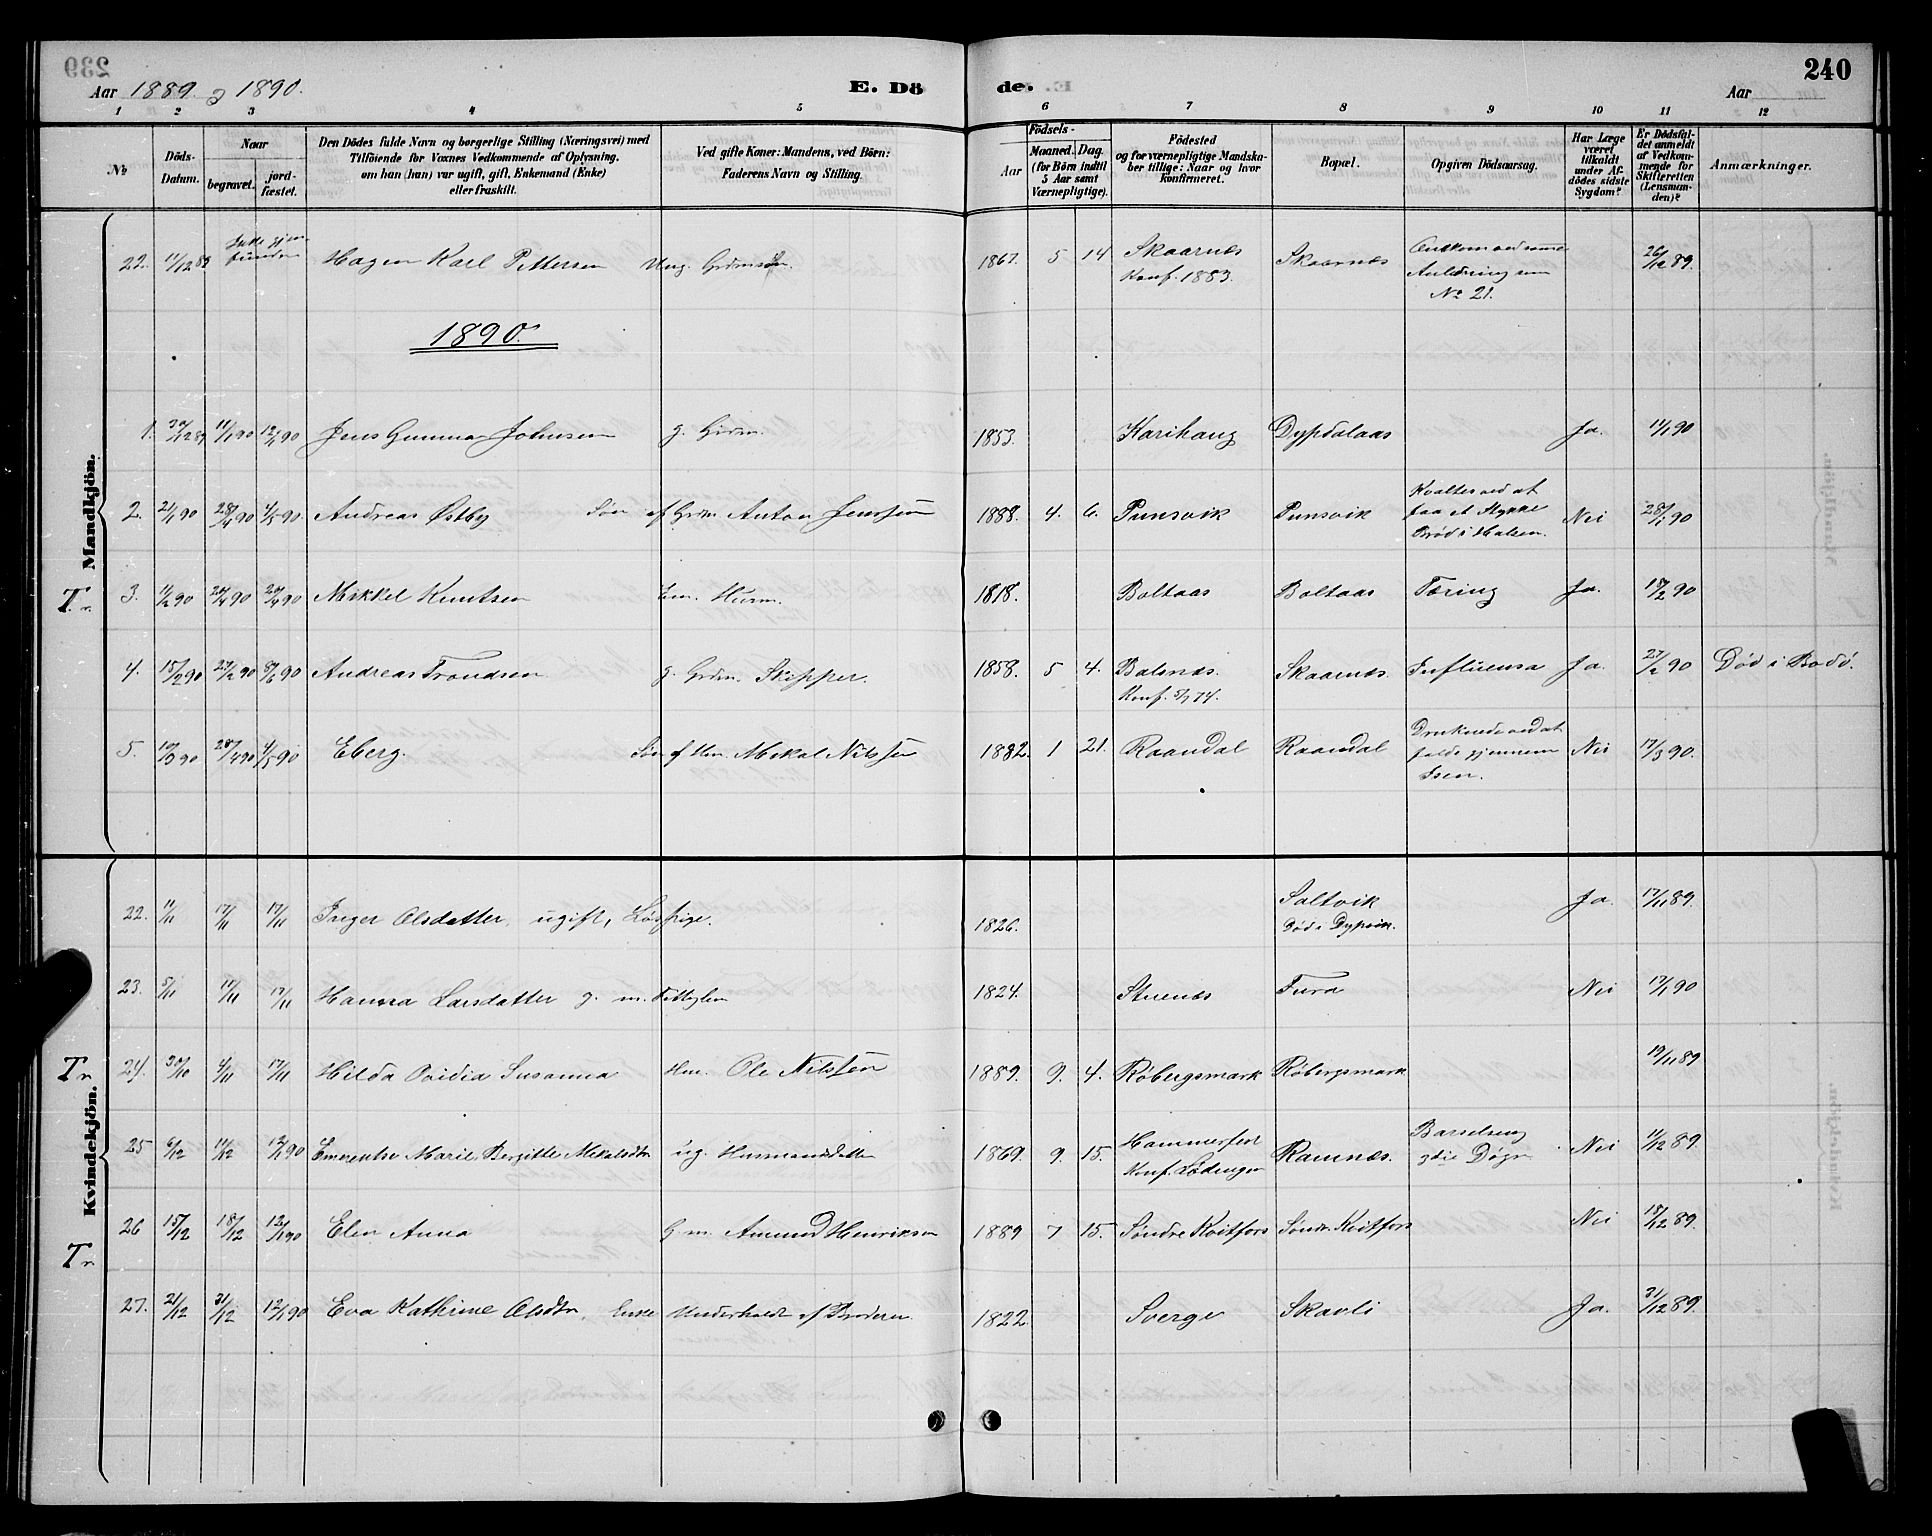 239
Aar 1889 og 1890.
E. Dö
de.
240
Aar
1 2 3 4 5 6 7 8 9 10 11 12
№
Döds-Datum.
Naar
begravet.
jord-fæstet.
Den Dödes fulde Navn og borgerlige Stilling (Næringsvei) med
Tilföiende for Voxnes Vedkommende af Oplysning,
om han (hun) var ugift, gift, Enkemand (Enke)
eller fraskilt.
Ved gifte Koner: Mandens, ved Börn:
Faderens Navn og Stilling.
Födsels-
Aar
Maaned. Dag.
(for Börn indtil
5 Aar samt
Værnepligtige).
Födested
og for værnepligtige Mandska-
ber tillige: Naar og hvor
konfirmeret.
Bopæl.
Opgiven Dödsaarsag.
Har Læge
været
tilkaldt
under Af-
dödes sidste
Sygdom?
Er Dödsfal-
det anmeldt
af Vedkom-
mende for
Skifteretten
(Lensman-
den)?
Anmærkninger.
Mandkjön.
22. 11/12 89 Ikke gjen-
funden Hagen Karl Pettersen Ung. Grdmsøn. 1867. 5 14 Skaarnes
Konf. 1883. Skaarnes Omkom ved samme
Anledning som
No 21. 26/12 89.
1890.
1. 30/12 89 11/1 90 12/1 90 Jens Gunnar Johnsen g. Grdm. 1853. Karihaug Dypdalaas Ja. 11/1 90
2. 21/1 90 28/4 90 4/5 90 Andreas Østby Søn af Grdm. Anton Jenssen 1888. 4. 6. Punsvik Punsvik Kvaltes ved at
faa et Stykke
Brød i Halsen. Nei 28/1 90
T. 3. 11/2 90 20/4 90 20/4 90 Mikkel Knutsen Em. Husm. 1818. Boltaas Boltaas Tæring Ja. 18/2 90
4. 15/2 90 27/2 90 8/6 90 Andreas Trondsen g. Grdm. Skipper. 1858. 5 4. Balsnes.
Konf. 5/7 74. Skaarnes. Influensa Ja. 27/2 90 Død i Bodö.
5. 10/3 90 28/4 90 4/5 90 Eberg. Søn af Hm. Mikal Nilssen 1882. 1 21. Raandal Raandal Druknede ved at
falde gjennem
Isen. Nei 17/3 90.
Kvindekjön.
22. 11/11 17/11 17/11 Inger Olsdatter, ugift, Løspige. 1826. Saltvik
Død i Dypvik. Ja. 17/11 89.
23. 5/11 17/11 17/11 Hanna Larsdatter g. m. 1824. Stunes Fura Nei 17/1 90
Tr 24. 30/10 4/11 17/11 Hilda Ovidia Susanna Hm. Ole Nilssen 1889. 9. 4. Røbergsmark Røbergsmark 19/11 89
25 6/12 11/12 12/1 90 Emerentse Marie Bergitte Mikalsdtr ug. Husmandsdatter 1869. 9. 15. Hammerfest
Konf. Lødingen Ramnes. Barselseng Nei 11/12 89.
Tr 26 15/12 18/12 12/1 90 Elen Anna G. m. Amund Henriksen 1889 7 15. Søndre Kvitfors Søndr. Kvitfors Nei 18/12 89.
27. 21/12 31/12 12/1 90 Eva Kathrine Olsdtr, Enke Underholdt af Broderen 1822. Sverge Skavli Ja. 31/12 89.